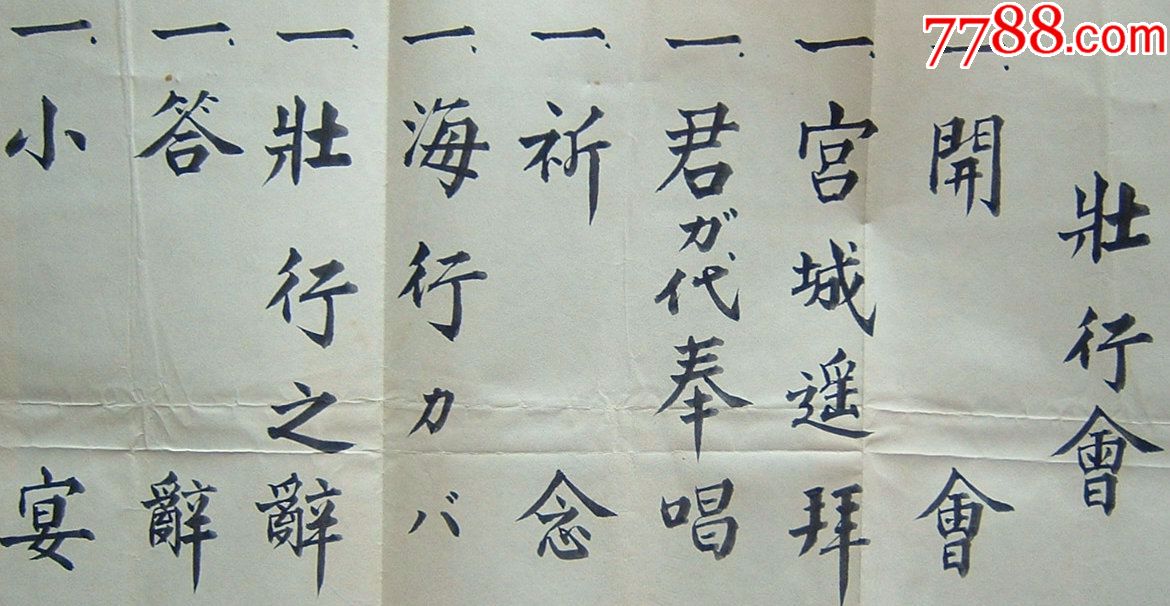 7788.com
壯行會
一、開會
一、宮城遥拜
一、君ガ代奉唱
一、祈念
一、海行カバ
一、壯行之辭
一、答辭
一、小宴